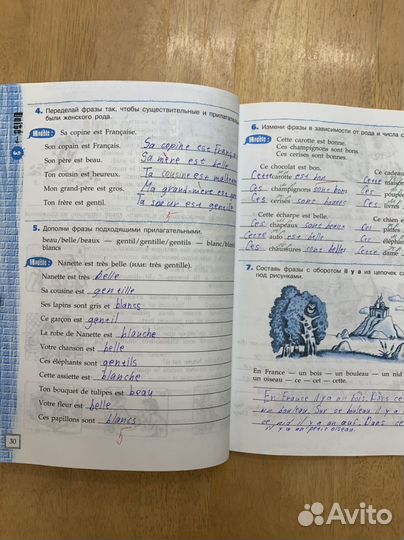 4. Переделай фразы так, чтобы существительные и прилагательные
были женского рода.
Modèle: Sa copine est Française.
Son copain est Français. Sa copine est Français
Son père est beau. Sa mère est belle
Ton cousin est heureux. Ta cousine est
Mon grand-père est gros. Ma grand-mère est
Ton frère est gentil. Ta sœur est gentille
5
5. Дополни фразы подходящими прилагательными.
beau/belle/beaux — gentil/gentille/gentils — blanc/blanche/
blancs
Modèle: Nanette est très belle (или: très gentille).
Nanette est très belle
Sa cousine est gentille
Ses lapins sont gris et blancs
Ce garçon est gentil
La robe de Nanette est blanche
Votre chanson est belle
Ces éléphants sont gentils
Cette assiette est blanche
Ton bouquet de tulipes est beau
Votre fleur est belle
Ces papillons sont blancs
5
30
6. Измени фразы в зависимости от рода и числа
Modèle: Cette carotte est bonne.
Ces champignons sont bons.
Ces cerises sont bonnes.
Ce chocolat est bon. Ce cadeau
Cette carotte est bon
Ces champignons sont bons
Ces cerises sont bonnes livres
Cette écharpe est belle. Ce chien
Ces chapeaux sont beaux
Cette auto est belle éléphants
Ces chaussures sont belles dame
7. Составь фразы с оборотом il y a из цепочек
под рисунками.
En France — un bois — un bouleau — un nid
un oiseau — ce — cet — cette.
En France il y a un bois. Dans ce
un bouleau. Sur ce bouleau il y a
ce nid il y a un œuf. Dans ce
il y a un petit oiseau.
Avito